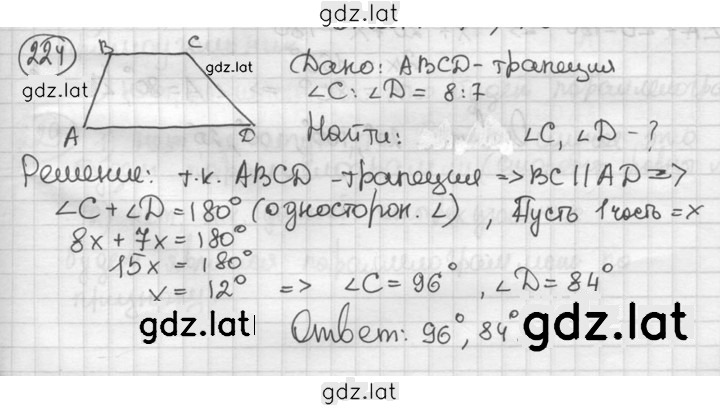 gdz.lat
224
B C
gdz.lat
gdz.lat
A D
Дано: ABCD - трапеция
∠C : ∠D = 8 : 7
Найти: ∠C, ∠D - ?
Решение: т.к. ABCD - трапеция => BC || AD =>
∠C + ∠D = 180° (односторон. ∠), Пусть 1 часть = x
8x + 7x = 180°
15x = 180°
x = 12° => ∠C = 96°, ∠D = 84°
gdz.lat
Ответ: 96°, 84°
gdz.lat
gdz.lat